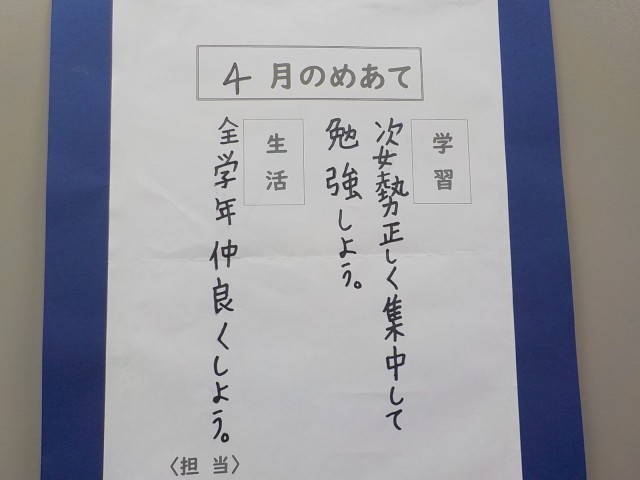 4月のめあて
学習
姿勢正しく集中して
勉強しよう。
生活
全学年仲良くしよう。
〈担当〉